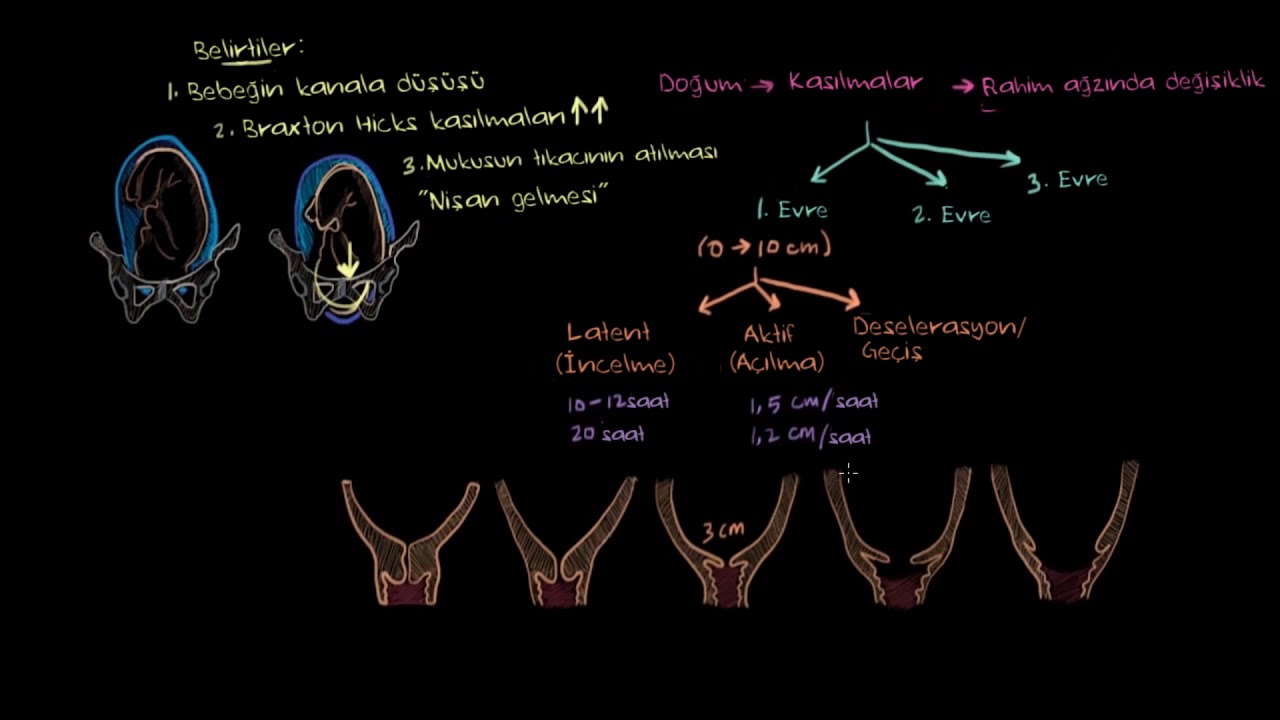 Belirtiler:
1. Bebeğin kanala düşüşü
2. Braxton Hicks kasılmaları ↑↑
3. Mukusun tıkacının atılması
"Nişan gelmesi"
Doğum → Kasılmalar → Rahim ağzında değişiklik
1. Evre
2. Evre
3. Evre
(0 → 10 cm)
Latent
(İncelme)
Aktif
(Açılma)
Deselerasyon/
Geçiş
10-12 saat
20 saat
1,5 cm/saat
1,2 cm/saat
3 cm